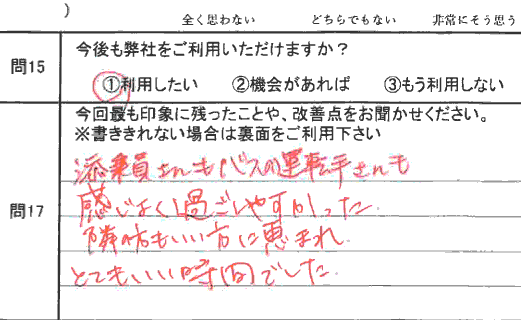 )
全く思わない どちらでもない 非常にそう思う
問15 今後も弊社をご利用いただけますか？
①利用したい ②機会があれば ③もう利用しない
問17 今回最も印象に残ったことや、改善点をお聞かせください。
※書ききれない場合は裏面をご利用下さい
添乗員さんもバスの運転手さんも
感じよく過ごしやすかった.
隣の方もいい方に恵まれ.
とてもいい時間でした.